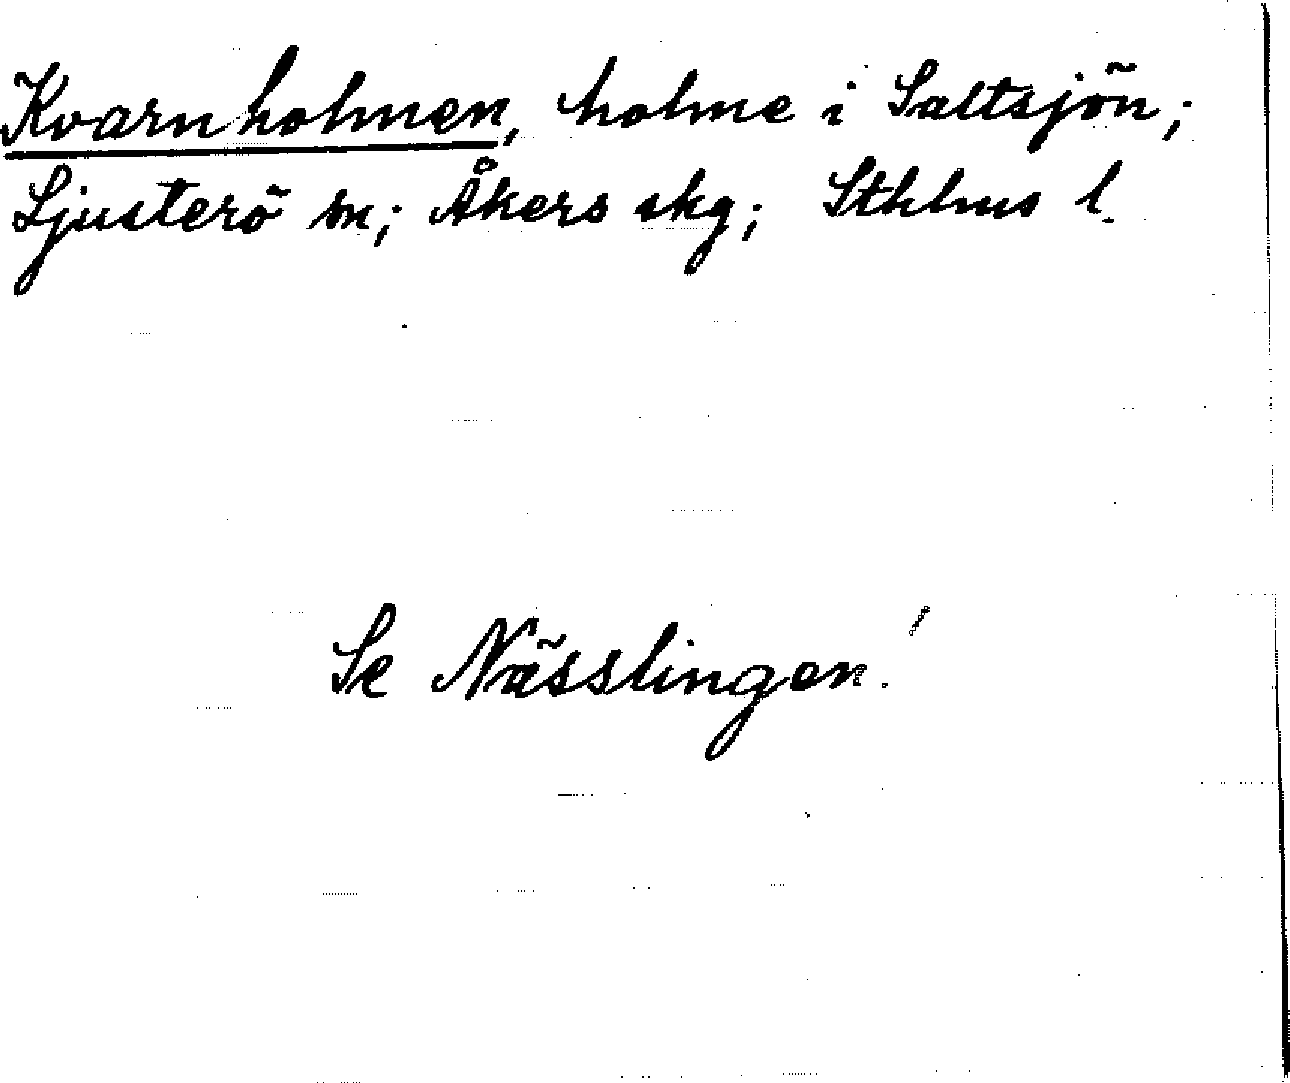 Kvarnholmen, holme i Saltsjön;
Ljusterö sn; Åkers skg; Sthlms l.
Se Nässlingen!